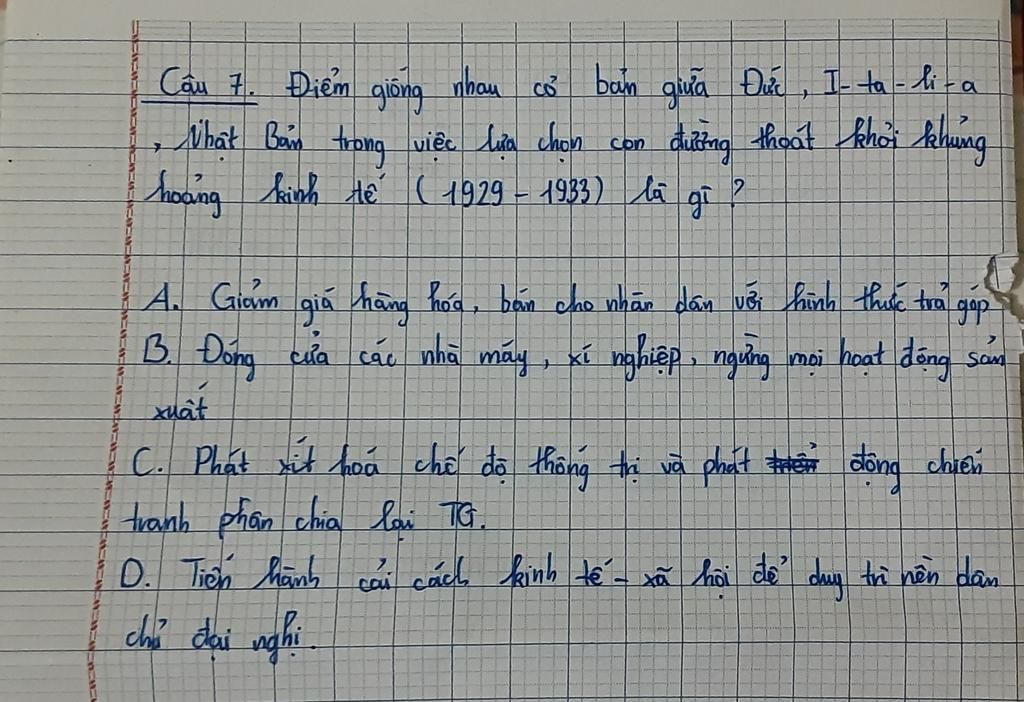 Câu 7. Điểm giống nhau cơ bản giữa Đức, I-ta-li-a
, Nhật Bản trong việc lựa chọn con đường thoát khỏi khủng
hoảng kinh tế (1929-1933) là gì?
A. Giảm giá hàng hóa, bán cho nhân dân với hình thức trả góp
B. Đóng cửa các nhà máy, xí nghiệp, ngừng mọi hoạt động sản
xuất
C. Phát xít hoá chế độ thống trị và phát động chiến
tranh phân chia lại TG.
D. Tiến hành cải cách kinh tế - xã hội để duy trì nền dân
chủ đại nghị.